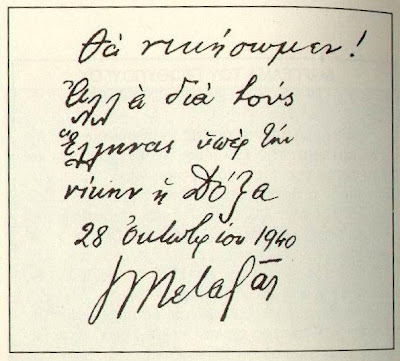 Θὰ νικήσωμεν!
Ἀλλὰ διὰ τοὺς
Ἕλληνας ὑπὲρ τὴν
νίκην ἡ Δόξα
28 Ὀκτωβρίου 1940
ΙΜεταξᾶς